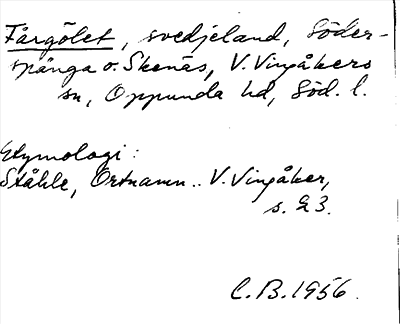 Fårgölet, svedjeland, Söder-
spånga o. Skenäs, V. Vingåkers
sn, Oppunda hd, Söd. l.
Etymologi:
Ståhle, Ortnamn.. V. Vingåker,
s. 23.
C.B. 1956.